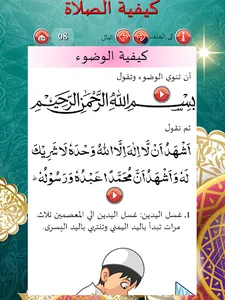 كيفية الصلاة
08
الى الخلف
التالي
كيفية الوضوء
أن تنوي الوضوء وتقول
بِسْمِ اللهِ الرَّحْمٰنِ الرَّحِيْمِ
ثم تقول
اَشْهَدُ اَنْ لَّا اِلٰهَ اِلَّا اللهُ وَحْدَهٗ لَا شَرِيْكَ
لَهٗ وَاَشْهَدُ اَنَّ مُحَمَّدًا عَبْدُهٗ وَرَسُوْلُهٗ
1. غسل اليدين: غسل اليدين الي المعصمين ثلاث
مرات تبدأ باليد اليمني وتنتهي باليد اليسرى.